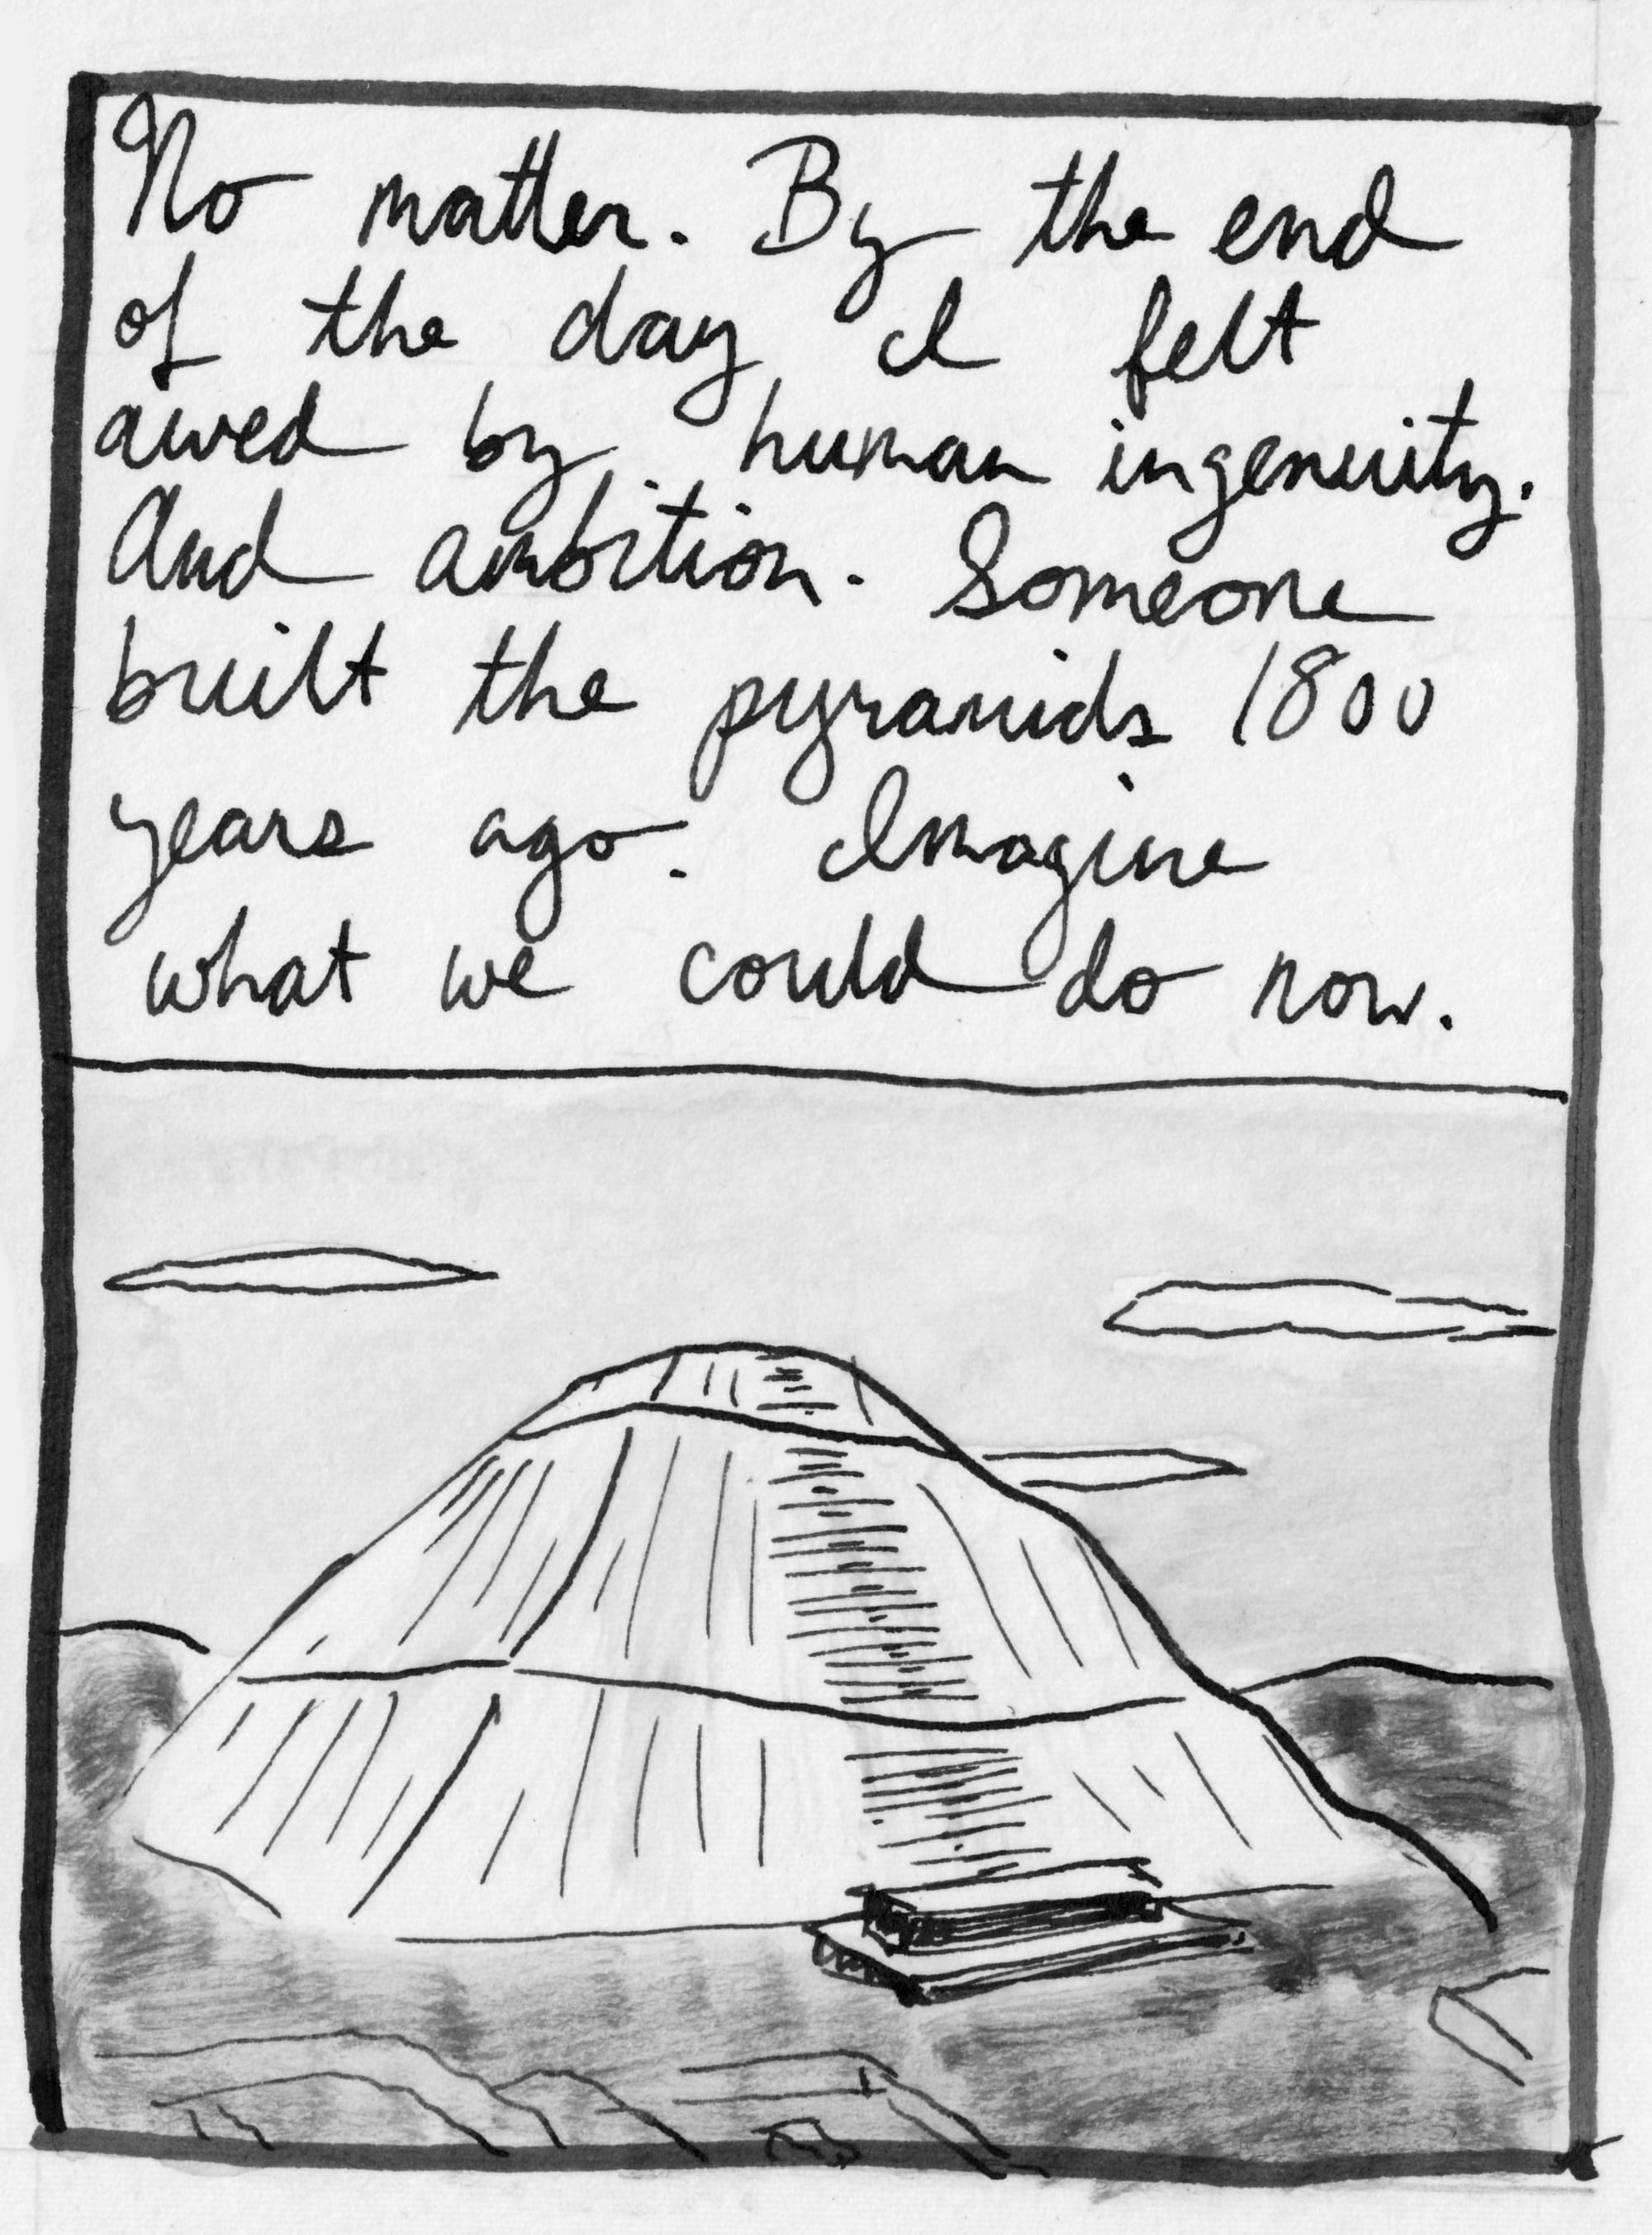 No matter. By the end
of the day I felt
awed by human ingenuity.
And ambition. Someone
built the pyramids 1800
years ago. Imagine
what we could do now.